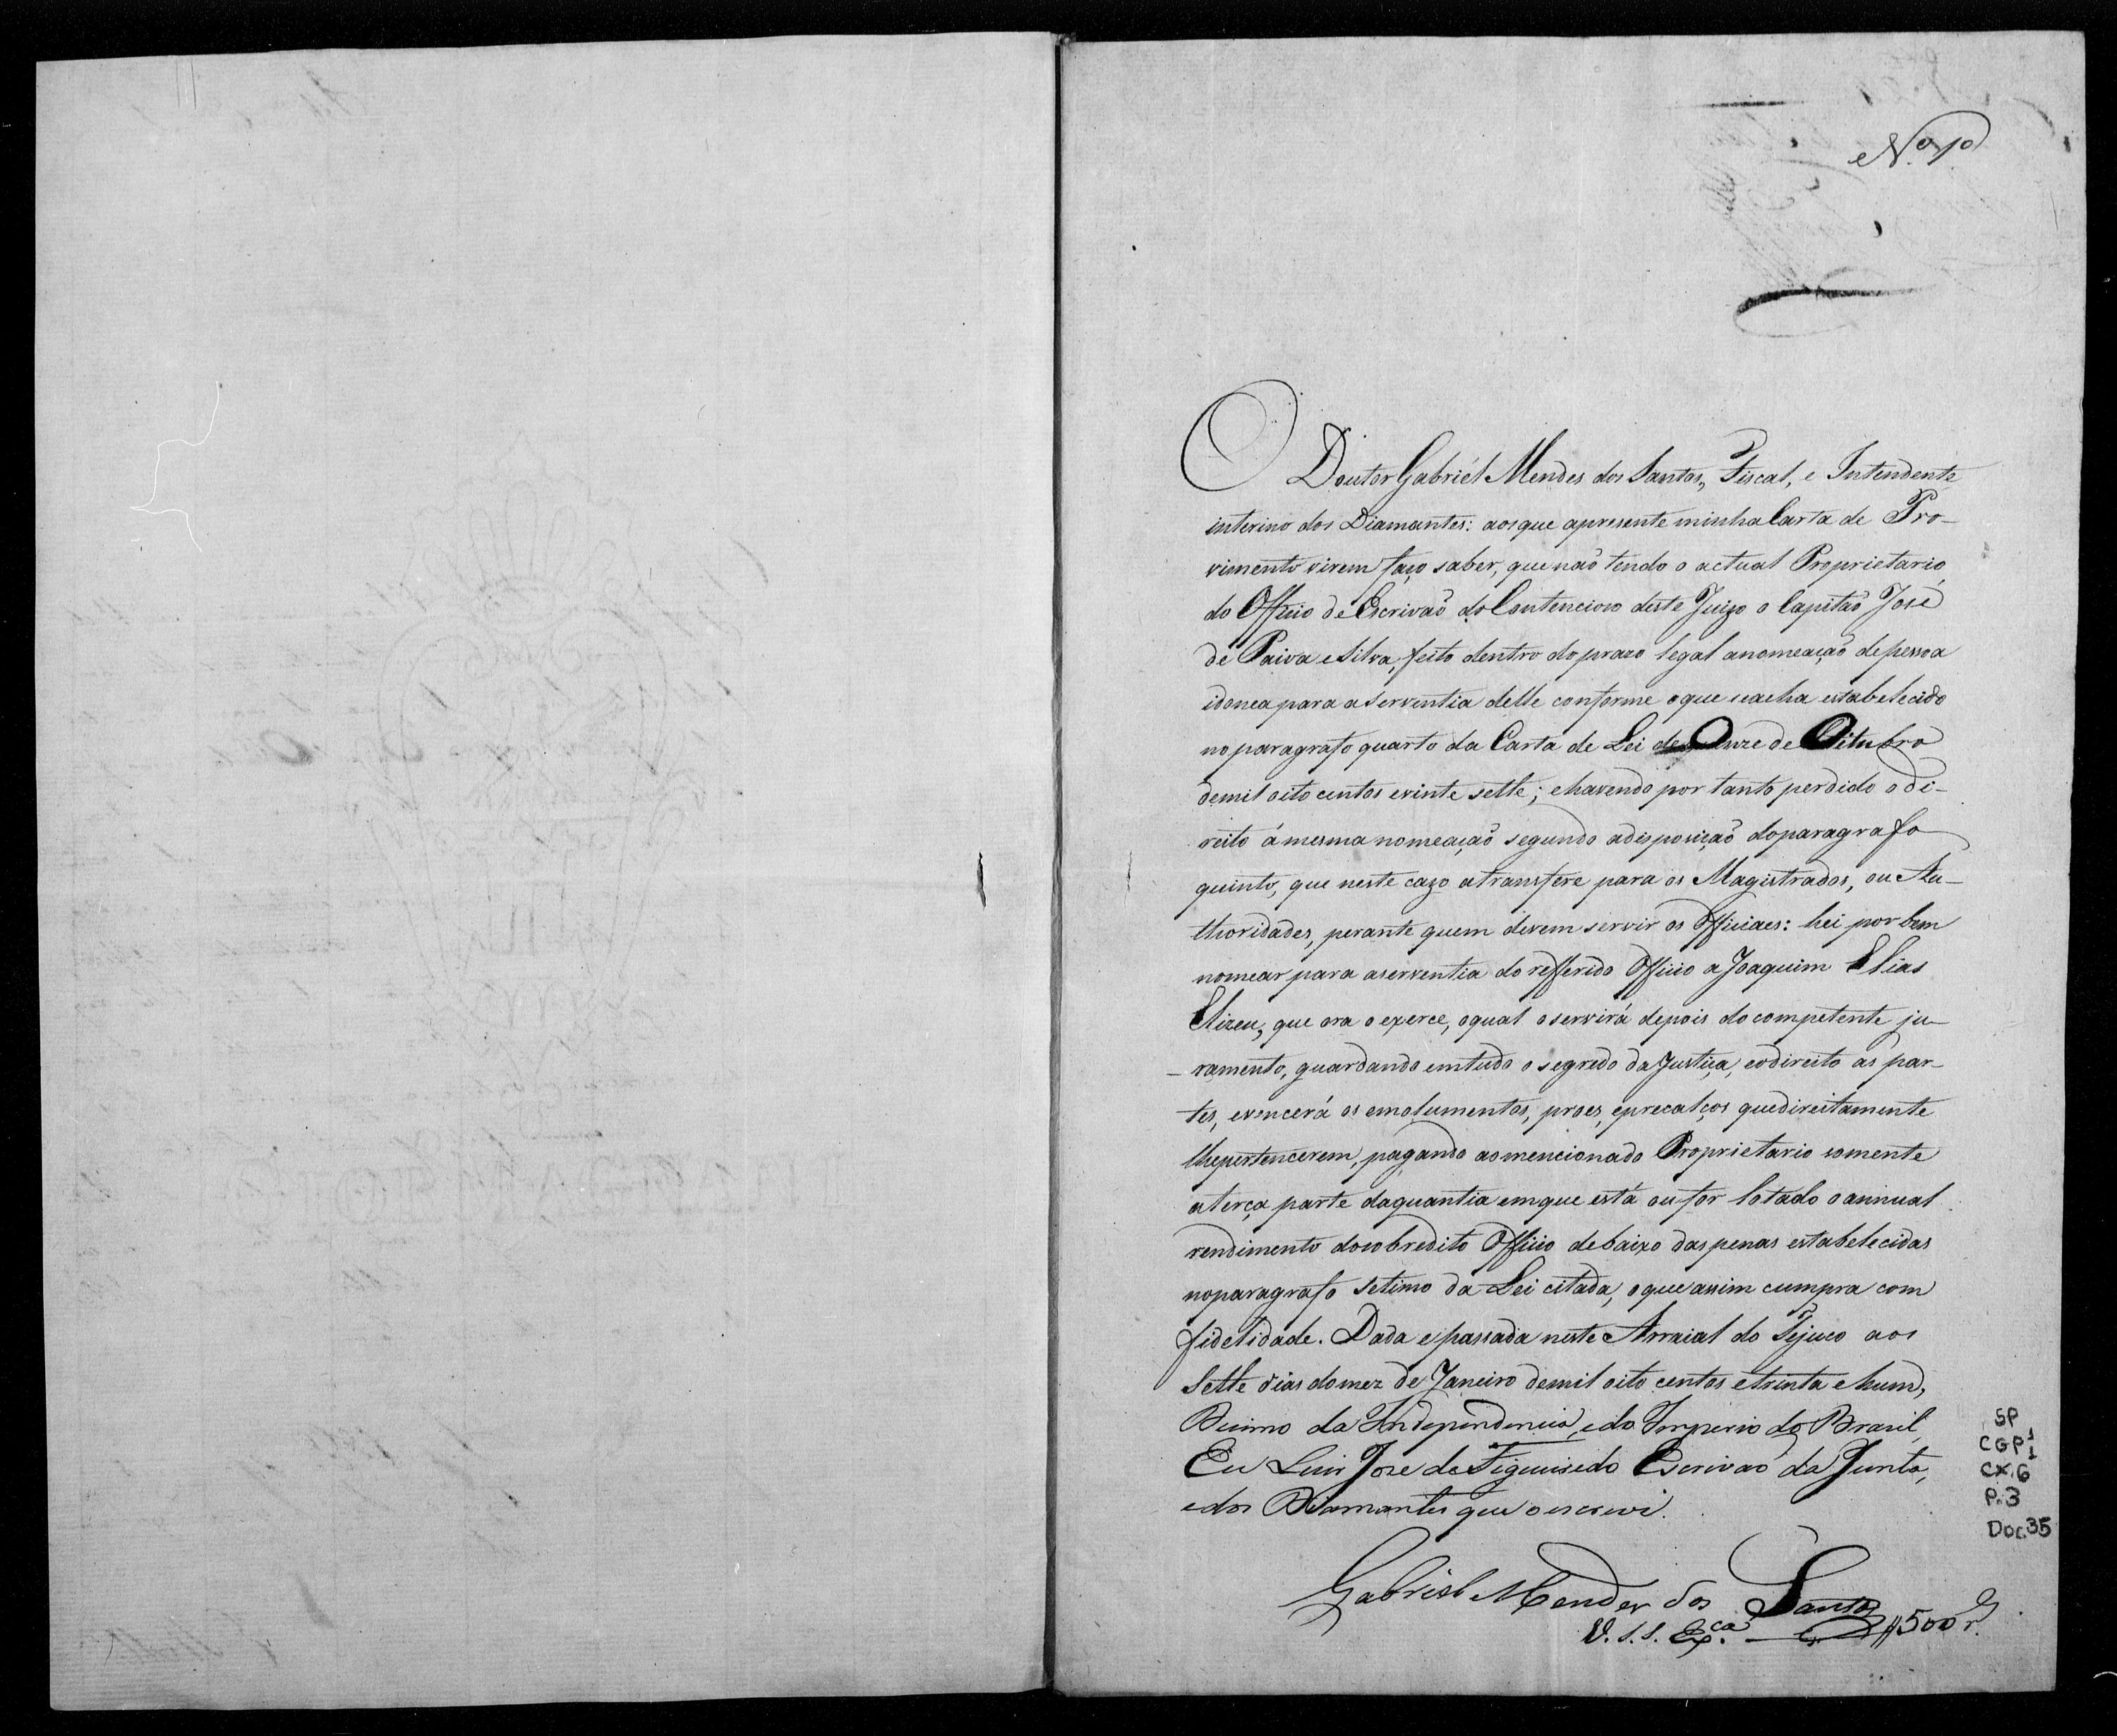 N.º 1º
O Doutor Gabriél Mendes dos Santos, Fiscal, e Intendente
interino dos Diamantes: aos que apresente minha Carta de Pro-
vimento virem faço saber, que não tendo o actual Proprietario
do Officio de Escrivaõ do Contencioso deste Juizo o Capitaõ José
de Paiva e Silva, feito dentro do prazo legal a nomeaçaõ de pessoa
idonea para a serventia delle conforme o que se acha estabelecido
no paragrafo quarto da Carta de Lei de Onze de Oitubro
de mil oito centos e vinte sette; e havendo por tanto perdido o di-
reito á mesma nomeaçaõ segundo a disposiçaõ do paragrafo
quinto, que neste cazo a transfere para os Magistrados, ou Au-
thoridades, perante quem devem servir os Officiaes: hei por bem
nomear para a serventia do refferido Officio a Joaquim Elias
Elizeu, que ora o exerce, o qual o servirá depois do competente ju-
ramento, guardando em tudo o segredo da Justiça, e o direito ás par-
tes, e vencerá os emolumentos, proes, e precalços que direitamente
lhe pertencerem, pagando ao mencionado Proprietario somente
a terça parte da quantia em que está ou for lotado o annual
rendimento do sobredito Officio debaixo das penas estabelecidas
no paragrafo setimo da Lei citada, o que assim cumpra com
fidelidade. Dada e passada neste Arraial do Tejuco aos
Sette dias do mez de Janeiro de mil oito centos e trinta e hum,
Decimo da Independencia, e do Imperio do Brasil,
Eu Luis Jose de Figueiredo Escrivaõ da Junta,
e dos Diamantes que o escrevi.
Gabriel Mendes dos Santos
V. S. S. Ex.ca 500 r.s
SP
CGP1
CX.6
P.3
Doc.35